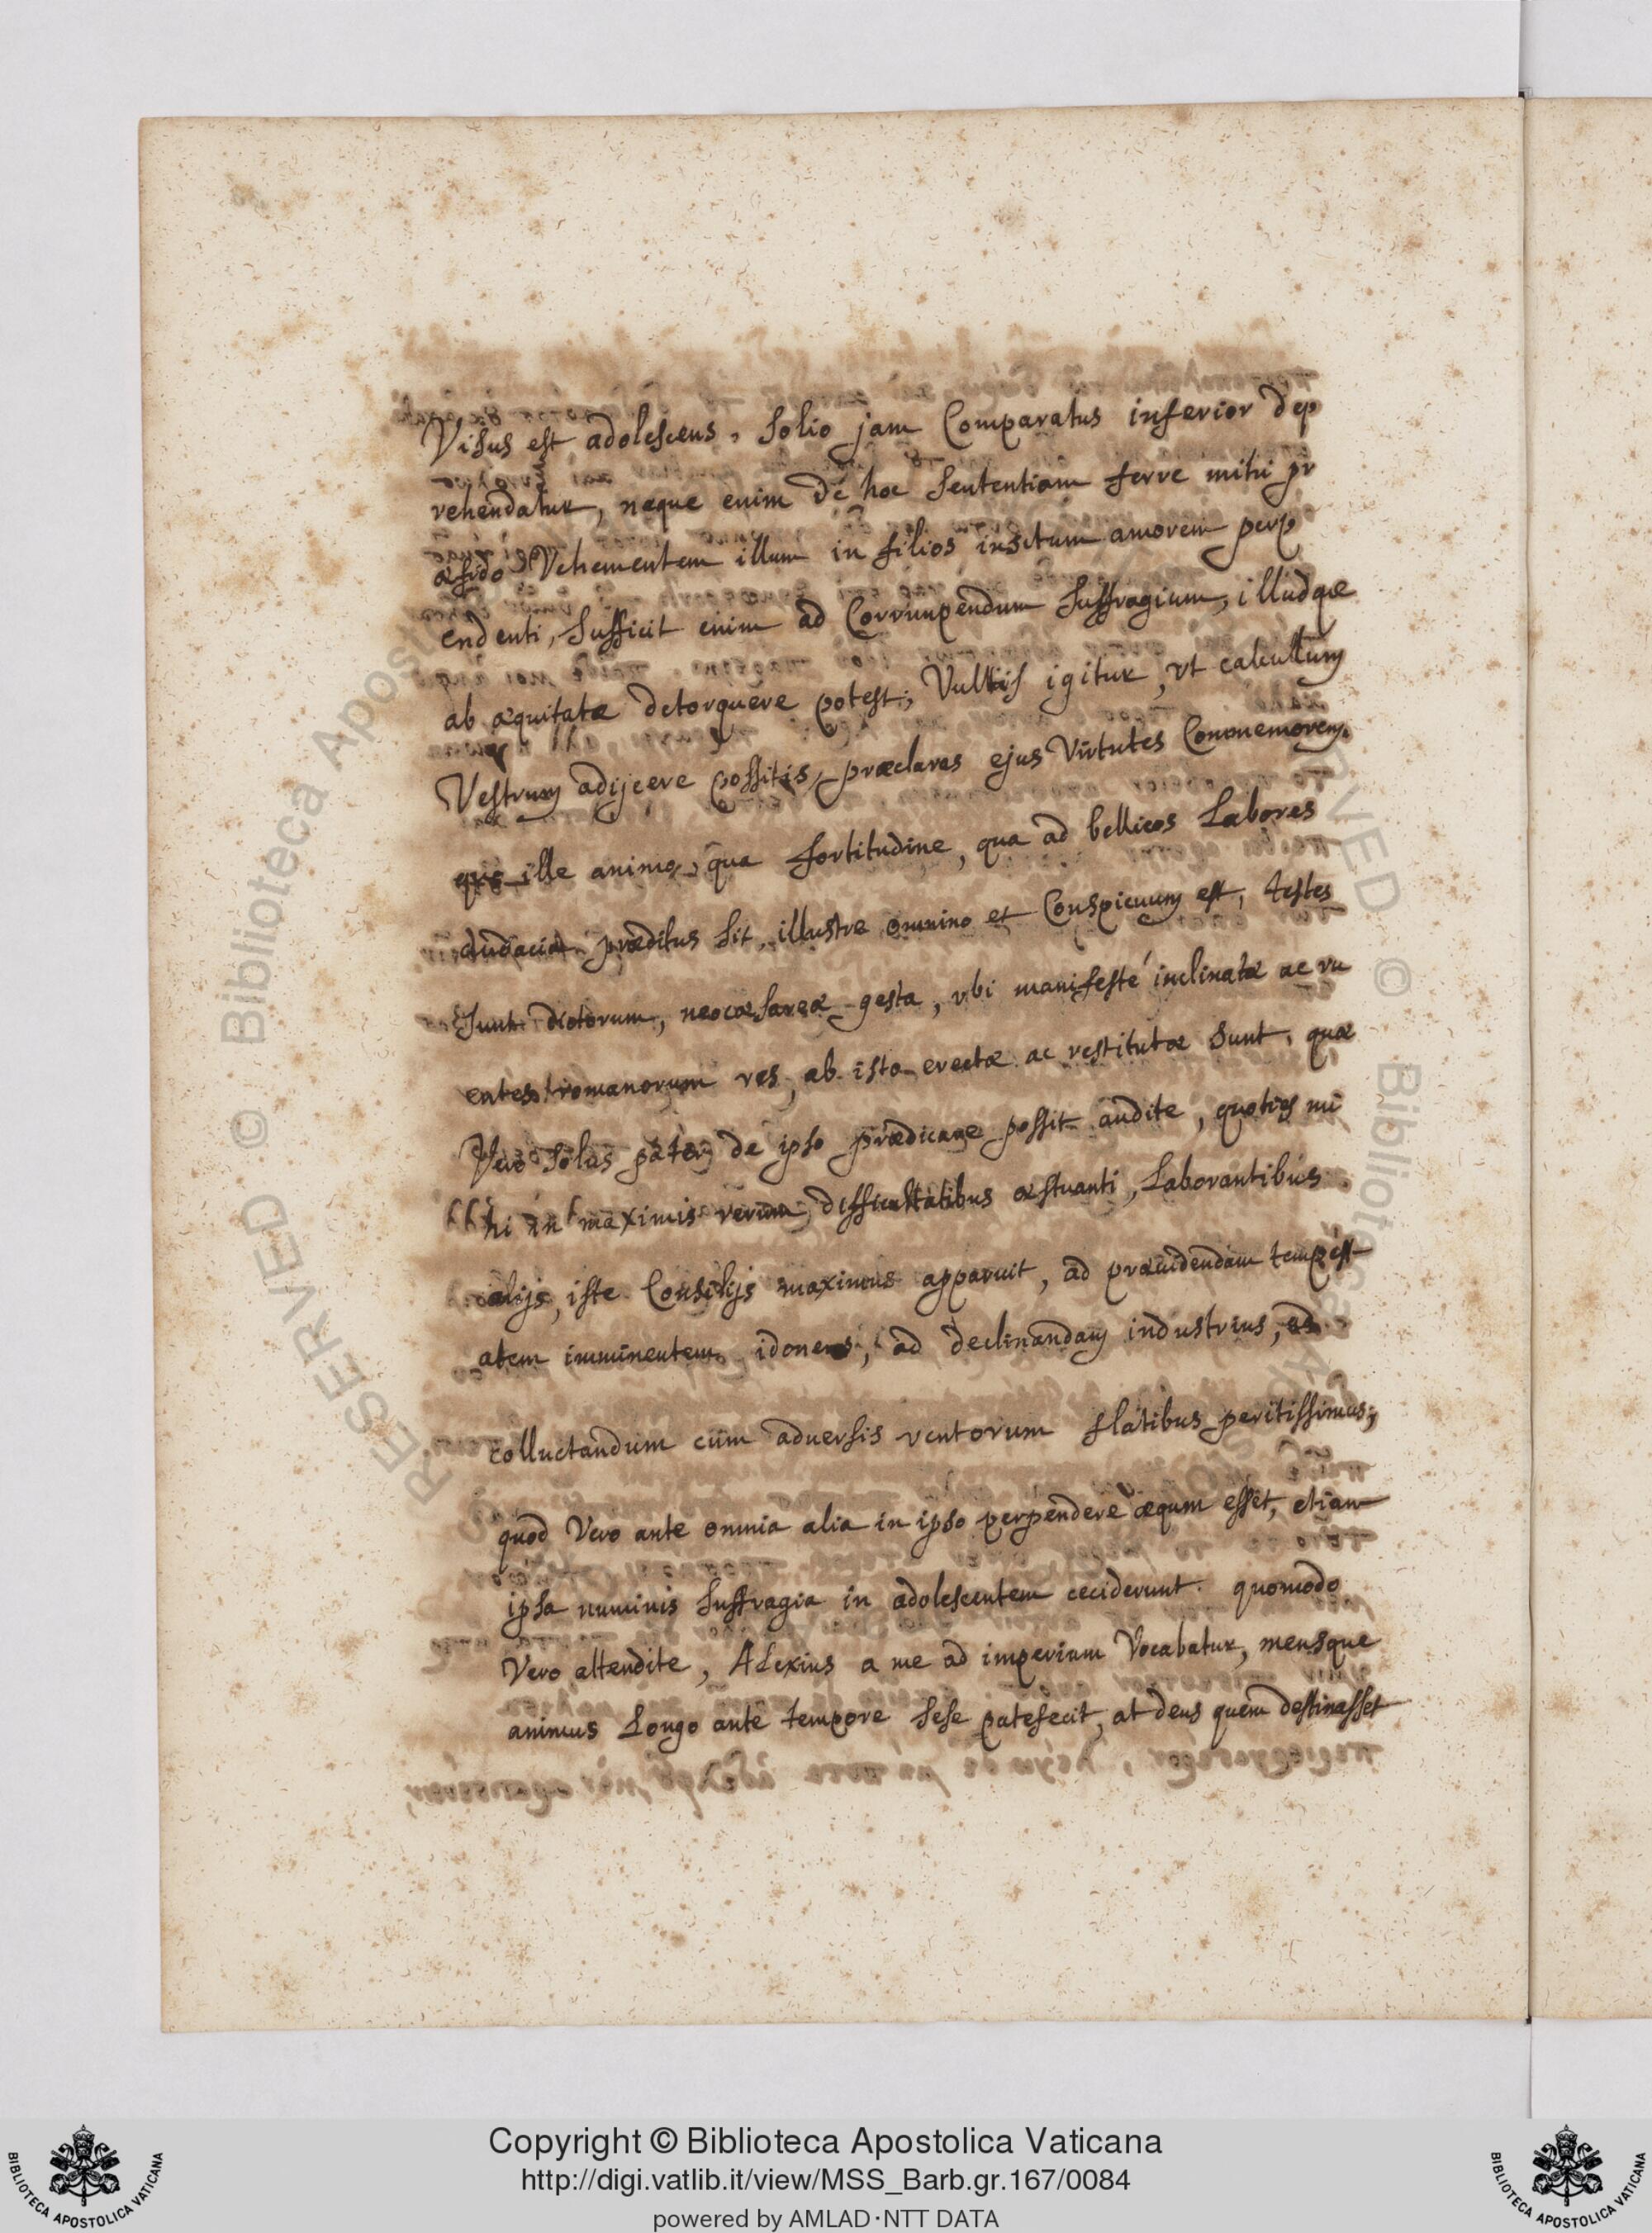 Visus est adolescens, Solio jam Comparatus inferior dep
rehendatur, neque enim de hoc Sententiam ferre mihi pr
æsido Vehementem illum in filios insitum amorem perp
endenti, Sufficit enim ad Corrumpendum Suffragium, illudque
ab æquitate detorquere potest; Vultis igitur, vt calcullum
Vestrum adijcere possitis, præclaras ejus Virtutes Commemorem.
quo ille animo, qua fortitudine, qua ad bellicos Labores
audacia præditus Sit, illustre omnino et Conspicuum est, testes
Sunt dictorum, neocæsareæ gesta, vbi manifesté inclinatæ ac ru
entes romanorum res, ab isto erectæ ac restitutæ Sunt, quæ
Vero Solus pater de ipso prædicare possit audite, quoties mi
hi in maximis rerum difficultatibus æstuanti, Laborantibus
alijs, iste Consilijs maximus apparuit, ad præuidendam tempest
atem imminentem idoneus, ad declinandam industrius, ad
colluctandum cum aduersis ventorum flatibus peritissimus;
quod Vero ante omnia alia in ipso perpendere æqum esset, etiam
ipsa numinis Suffragia in adolescentem ceciderunt. quomodo
Vero attendite, Alexius a me ad imperium Vocabatur, mensque
animus Longo ante tempore Sese patefecit, at deus quem destinasset
RESERVED © Biblioteca Apost
RVED © Biblioteca
Copyright © Biblioteca Apostolica Vaticana
http://digi.vatlib.it/view/MSS_Barb.gr.167/0084
powered by AMLAD·NTT DATA
BIBLIOTECA APOSTOLICA VATICANA
BIBLIOTECA APOSTOLICA VATICANA